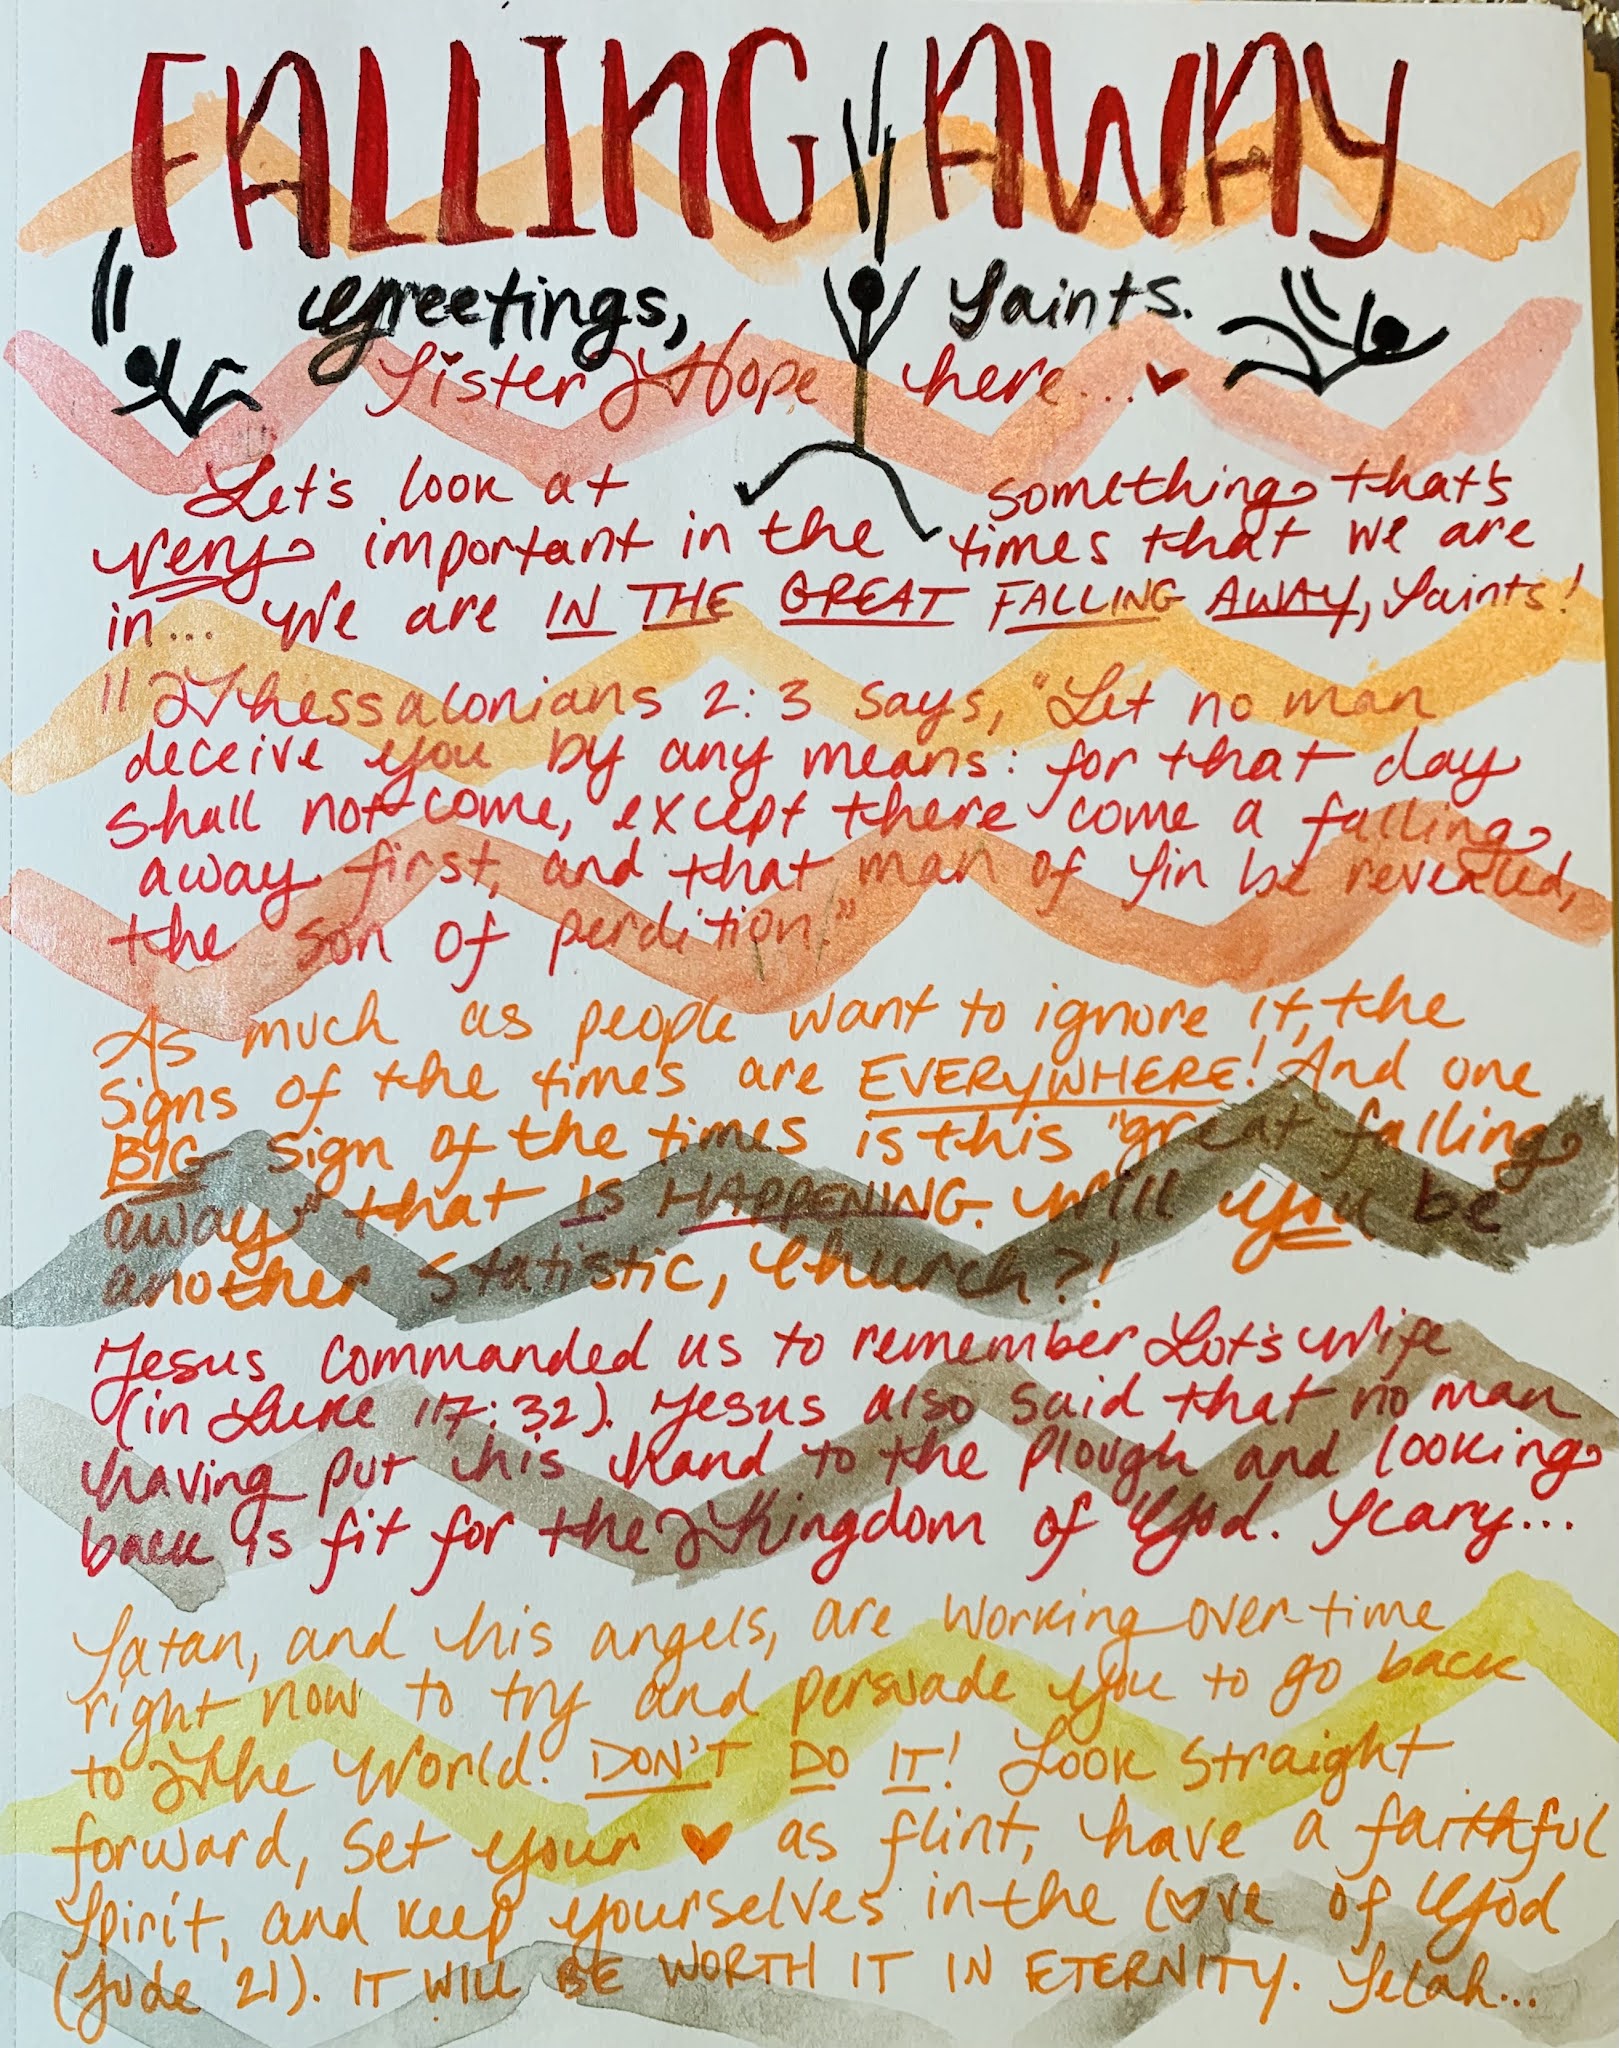 FALLING AWAY
Greetings, Saints.
Sister Hope here...
Let's look at something that's
very important in the times that we are
in... We are IN THE GREAT FALLING AWAY, Saints!
"2 Thessalonians 2:3 says, "Let no man
deceive you by any means: for that day
shall not come, except there come a falling
away first, and that man of sin be revealed,
the son of perdition."
As much as people want to ignore it, the
signs of the times are EVERYWHERE! And one
BIG sign of the times is this "great falling
away" that IS HAPPENING. Will you be
another statistic, Church?!
Jesus commanded us to remember Lot's wife
(in Luke 17:32). Jesus also said that no man
having put his hand to the plough and looking
back is fit for the Kingdom of God. Scary...
Satan, and his angels, are working overtime
right now to try and persuade you to go back
to The World. DON'T DO IT! Look straight
forward, set your ♥ as flint, have a faithful
spirit, and keep yourselves in the love of God
(Jude 21). IT WILL BE WORTH IT IN ETERNITY. Selah...